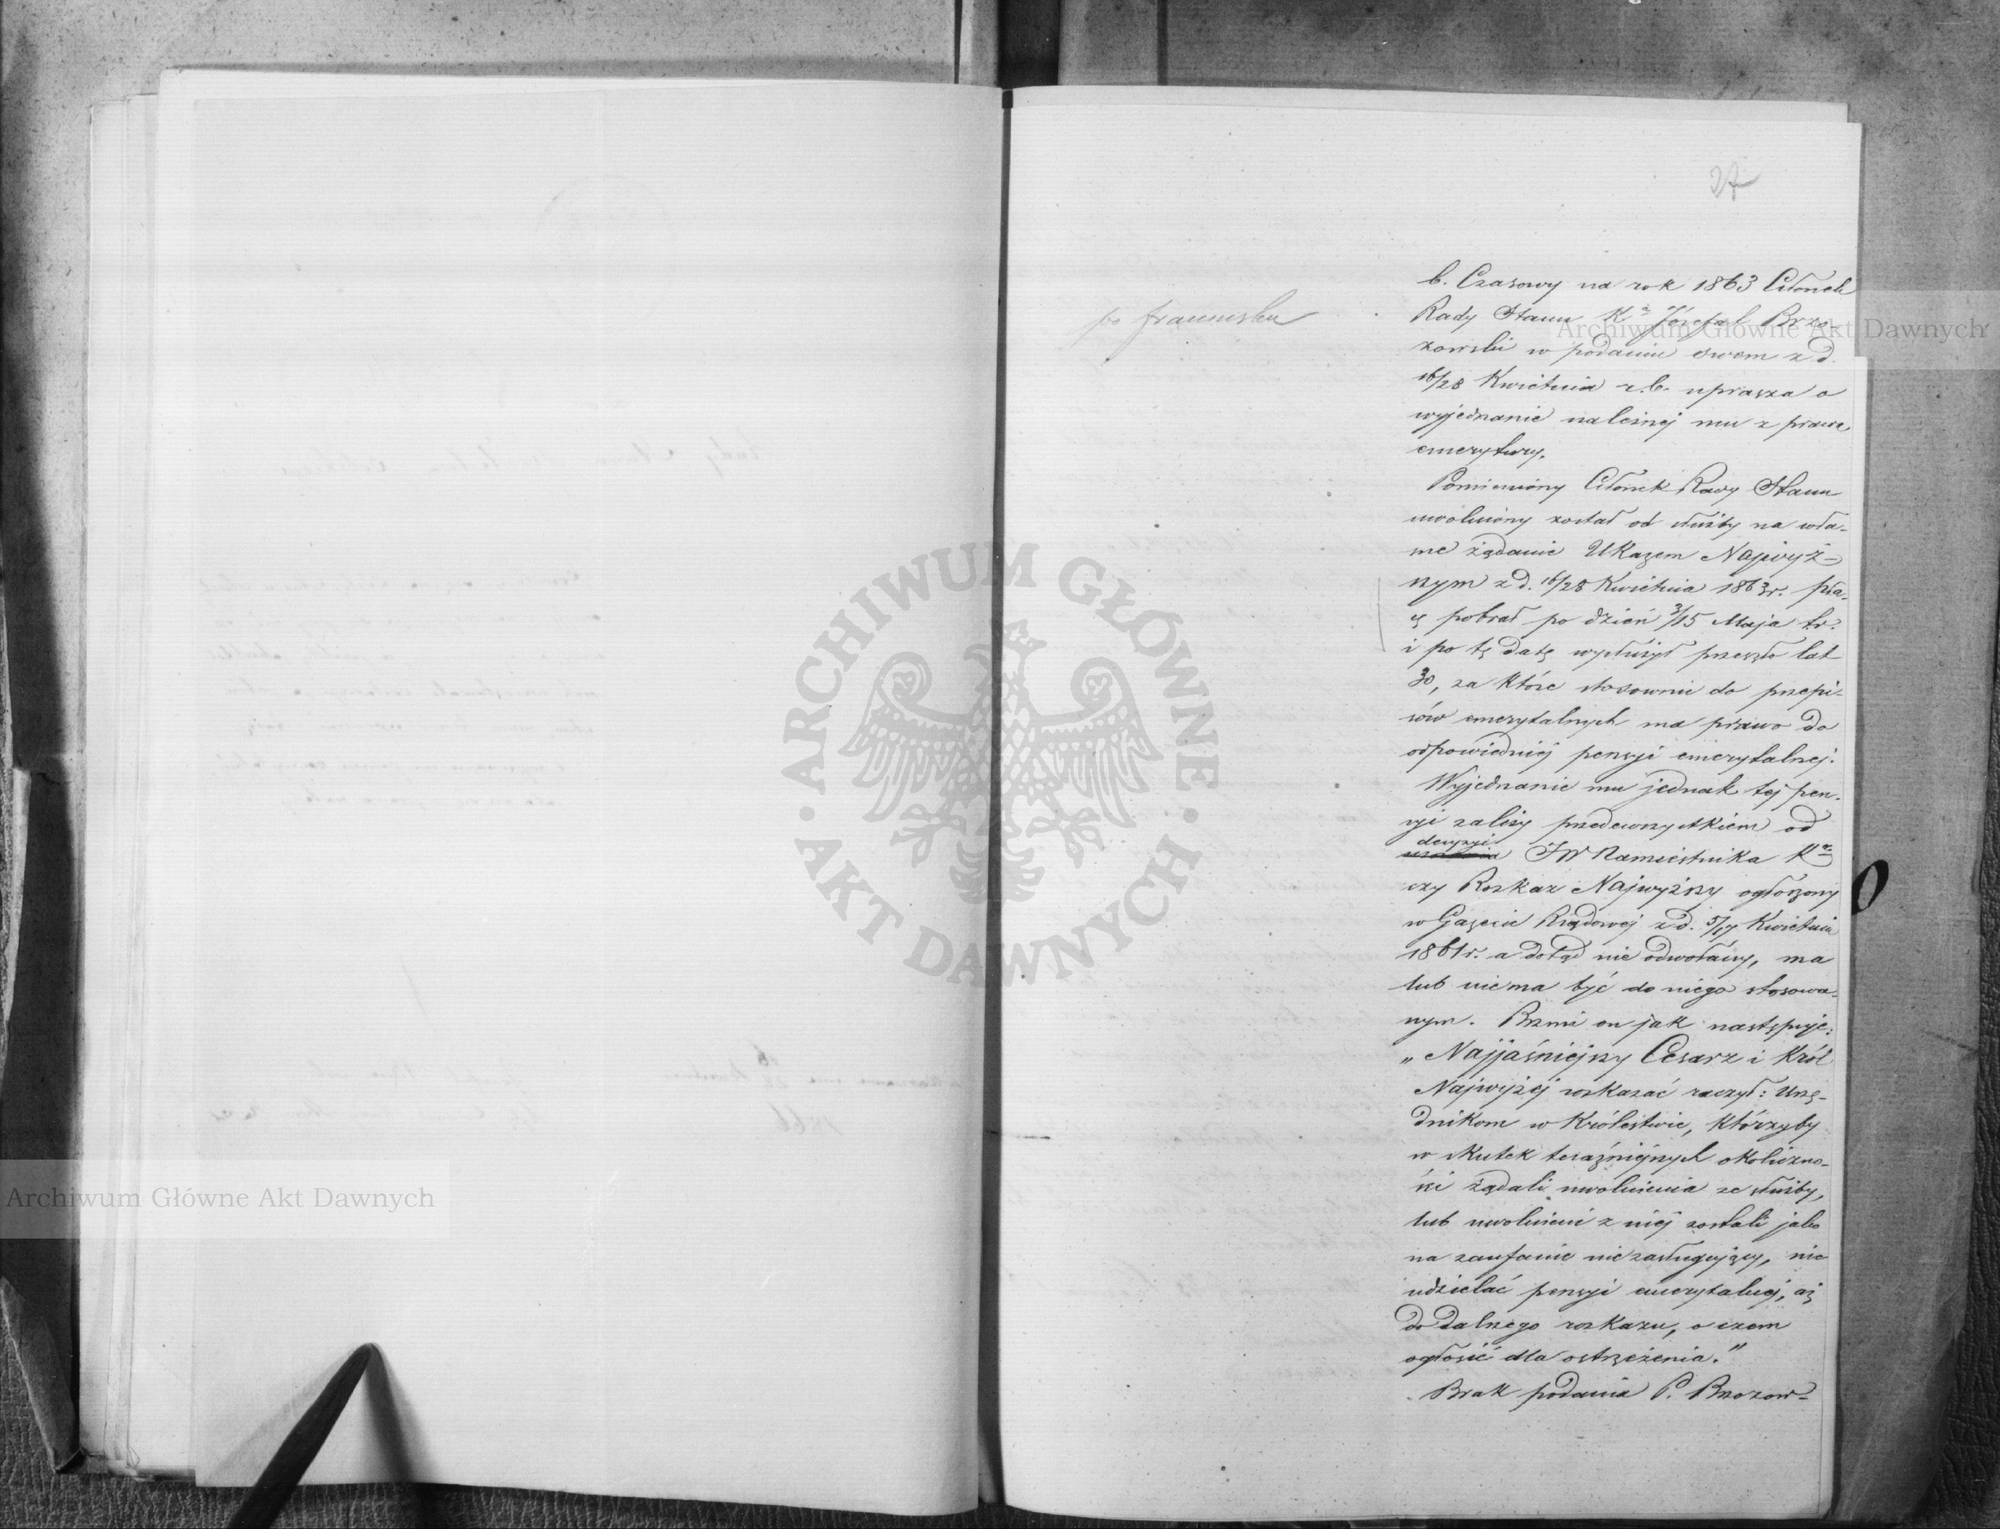 27
po francusku
b. Czasowy na rok 1863 Członek
Rady Stanu Kr. Józefat Brzo-
zowski w podaniu swem z d.
16/28 Kwietnia r.b. uprasza o
wyjednanie należnej mu z prawa
emerytury.
Pomieniony Członek Rady Stanu
uwolniony został od służby na wła-
sne żądanie Ukazem Najwyż-
szym z d. 16/28 Kwietnia 1863 r. pła-
cę pobrał po dzień 3/15 Maja t.r.
i po tę datę wysłużył przeszło lat
30, za które stosownie do przepi-
sów emerytalnych ma prawo do
odpowiedniej pensyi emerytalnej.
Wyjednanie mu jednak tej pen-
syi zależy przedewszystkiem od
decyzyi
JW Namiestnika Kr.
czy Rozkaz Najwyższy ogłoszony
w Gazecie Rządowej z d. 5/17 Kwietnia
1861 r. a dotąd nie odwołany, ma
lub nie ma być do niego stosowa-
nym. Brzmi on jak następuje:
„Najjaśniejszy Cesarz i Król
Najwyżej rozkazać raczył: Urzę-
dnikom w Królestwie, którzyby
w skutek teraźniejszych okoliczno-
ści żądali uwolnienia ze służby,
lub uwolnieni z niej zostali jako
na zaufanie niezasługujący, nie
udzielać pensyi emerytalnej, aż
do dalszego rozkazu, o czem
ogłosić dla ostrzeżenia."
Brak podania P. Brzozow-
ARCHIWUM GŁÓWNE AKT DAWNYCH
Archiwum Główne Akt Dawnych
Archiwum Główne Akt Dawnych